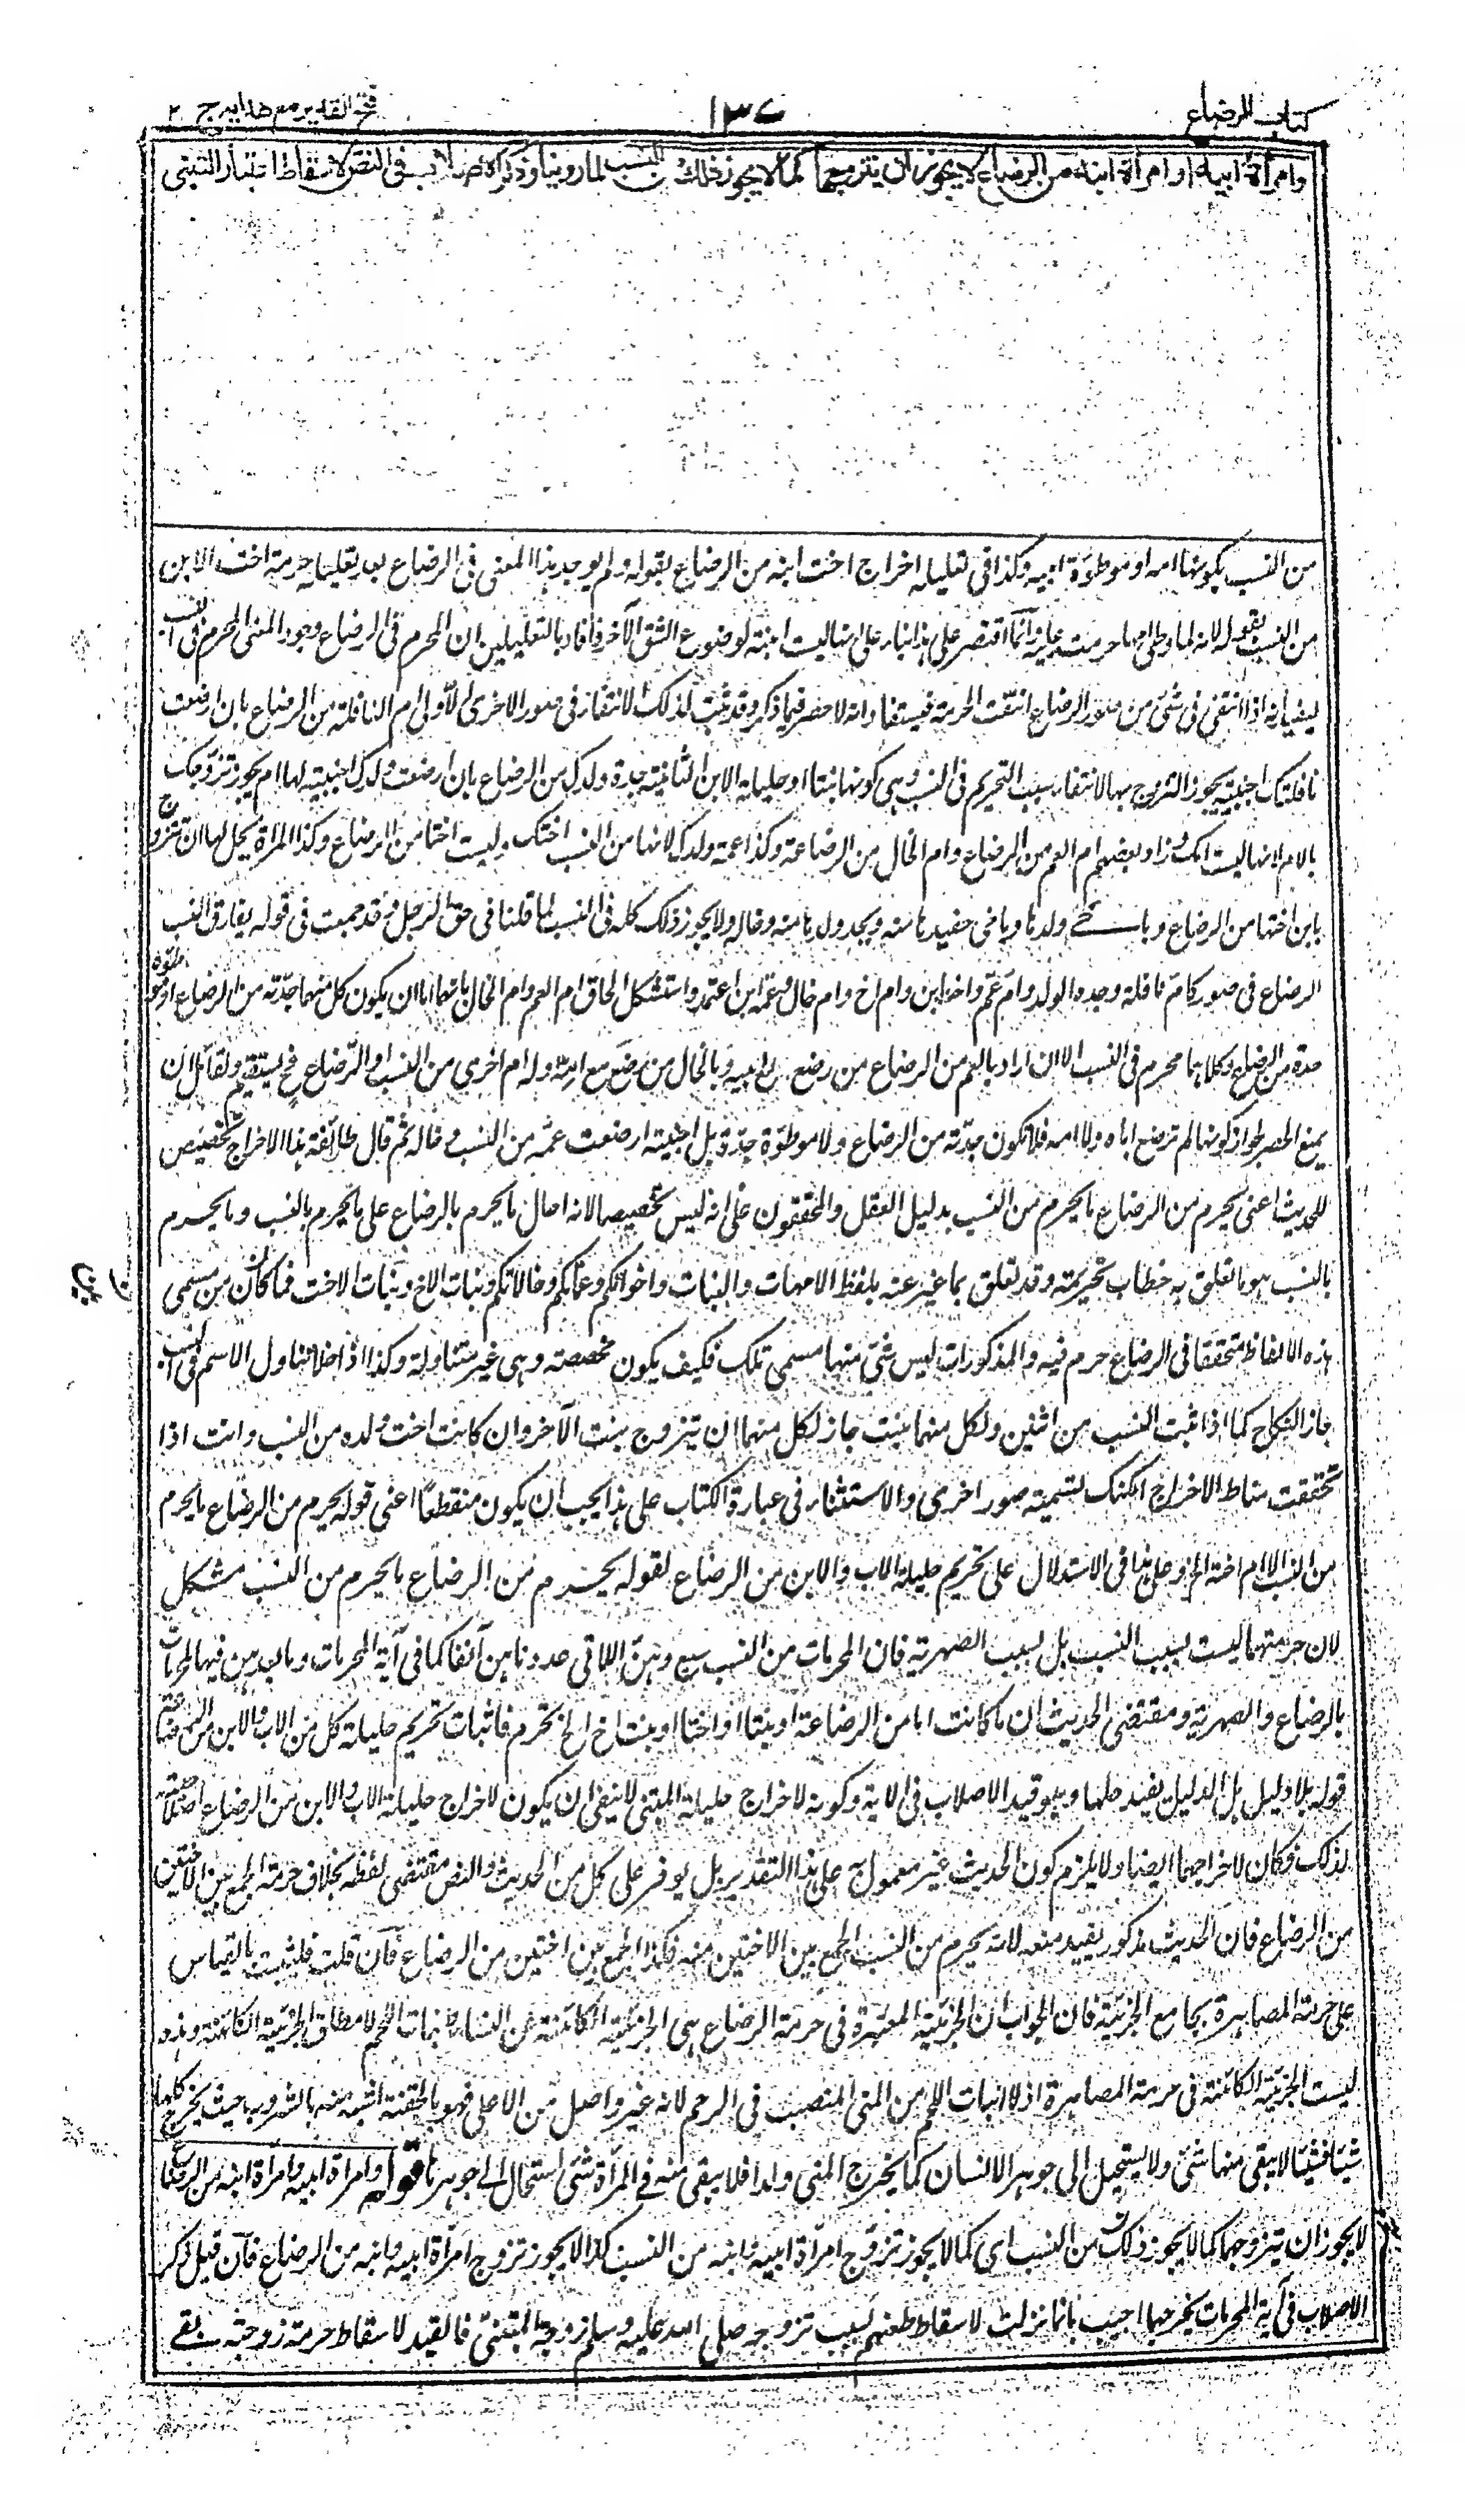 كتاب الرضاع
١٣٧
فتح القدير مع هدايه ج ٢
وامرأة ابيه او امرأة ابنه من الرضاع لا يجوز ان يتزوجهما كما لا يجوز ذلك من النسب لما روينا وذكر الاصلاب فى النص لاسقاط اعتبار التبنى
من النسب بكونها امه او موطوءة ابيه وكذا فى تعليله اخراج اخت ابنه من الرضاع بقوله ولم يوجد هذا المعنى فى الرضاع بعد تعليله حرمة اخت الابن
من النسب بقوله لانه لما وطئ امها حرمت عليه وانما اقتصر على هذا بناء على انها ليست ابنته لوضوح الشق الآخر فافاد بالتعليلين ان المحرم فى الرضاع وجود المعنى المحرم فى النسب
ليفيد انه اذا انتفى فى شئ من صور الرضاع انتفت الحرمة فيستفاد انه لا حصر فيما ذكر وقد ثبت لذلك الانتفاء فى صور اخرى الاولى ام النافلة من الرضاع بان ارضعت
نافلتك اجنبية يجوز التزوج بها لانتفاء سبب التحريم فى النسب وهى كونها بنتا او حليلة الابن الثانية جدة ولدك من الرضاع بان ارضعت ولدك اجنبية لها ام يجوز تزوجك
بالام لانها ليست امك وزاد بعضهم ام العم من الرضاع وام الخال من الرضاعة وكذا عمة ولدك لانها من النسب اختك وليست اختا من الرضاع وكذا المرأة يحل لها ان تتزوج
بابن اختها من الرضاع وباخى ولدها وباخى حفيدها منه وبجد ولدها منه وخاله ولا يجوز ذلك كله فى النسب لما قلنا فى حق الرجل وقد جمعت فى قوله يفارق النسب
الرضاع فى صور كام نافلة وجدة الولد وام عم واخت ابن وام اخ وام خال وعمة ابن اعتمد واستشكل الحاق ام العم وام الخال بانهما اما ان يكون كل منهما جدته من الرضاع او موطوءة
جده من الرضاع وكلاهما محرم فى النسب الا ان اراد بالعم من الرضاع من رضع مع ابيه وبالخال من رضع مع امه وله ام اخرى من النسب او الرضاع فح يستقيم ولقائل ان
يمنع الحصر لجواز كونها لم ترضع اباه ولا امه فلا تكون جدته من الرضاع ولا موطوءة جده بل اجنبية ارضعت عمه من النسب وخاله ثم قال طائفة هذا الاخراج تخصيص
للحديث اعنى يحرم من الرضاع ما يحرم من النسب بدليل العقل والمحققون على انه ليس تخصيصا لانه احال ما يحرم بالرضاع على ما يحرم بالنسب وما يحرم
بالنسب هو ما تعلق به خطاب تحريمه وقد تعلق بما عبر عنه بلفظ الامهات والبنات واخواتكم وعماتكم وخالاتكم وبنات الاخ وبنات الاخت فما كان من مسمى
هذه الالفاظ متحققا فى الرضاع حرم فيه والمذكورات ليس شئ منها مسمى تلك فكيف يكون مخصصة وهى غير متناولة وكذا اذا خلا تناول الاسم فى النسب
جاز النكاح كما اذا ثبت النسب من اثنين ولكل منهما بنت جاز لكل منهما ان يتزوج بنت الآخر وان كانت اخت ولده من النسب وانت اذا
تحققت مناط الاخراج امكنك تسمية صور اخرى والاستثناء فى عبارة الكتاب على هذا يجب ان يكون منقطعا اعنى قوله يحرم من الرضاع ما يحرم
من النسب الا ام اخته الخ وعلى هذا فى الاستدلال على تحريم حليلة الاب والابن من الرضاع بقوله يحرم من الرضاع ما يحرم من النسب مشكل
لان حرمتهما ليست بسبب النسب بل بسبب الصهرية فان المحرمات من النسب سبع وهن اللاتى عددناهن آنفا كما فى آية المحرمات وما بعدهن فيها المحرمات
بالرضاع والصهرية ومقتضى الحديث ان ما كانت اما من الرضاعة او بنتا او اختا او بنت اخ الخ تحرم فاثبات تحريم حليلة كل من الاب والابن من الرضاعة
قول بلا دليل بل الدليل يفيد حلها وهو قيد الاصلاب فى الآية وكونه لاخراج حليلة المتبنى لا ينفى ان يكون لاخراج حليلة الاب والابن من الرضاع لصلاحيته
لذلك فكان لاخراجهما ايضا ولا يلزم كون الحديث غير معمول به على هذا التقدير بل يوفر على كل من الحديث والنص مقتضى لفظه بخلاف حرمة الجمع بين الاختين
من الرضاع فان الحديث مذكور يفيد منعه لانه يحرم من النسب الجمع بين الاختين منه فكذا الجمع بين اختين من الرضاع فان قلت فليثبت بالقياس
على حرمة المصاهرة بجامع الجزئية فان الجواب ان الجزئية المعتبرة فى حرمة الرضاع هى الجزئية الكائنة عن النشاء وانبات اللحم لا مطلق الجزئية الكائنة وهذه
ليست الجزئية الكائنة فى حرمة المصاهرة اذ لا انبات للحم من المنى المنصب فى الرحم لانه غير واصل من الاعلى فهو بالحقنة اشبه منه بالشروب حيث يخرج كلها
شيئا فشيئا لا يبقى منها شئ ولا يستحيل الى جوهر الانسان كما يخرج المنى ولدا فلا يبقى منه فى المرأة شئ استحال الى جوهرها قوله وامرأة ابيه وامرأة ابنه من الرضاع
لا يجوز ان يتزوجهما كما لا يجوز ذلك من النسب اى كما لا يجوز تزوج امرأة ابيه وابنه من النسب كذا لا يجوز تزوج امرأة ابيه وابنه من الرضاع فان قيل ذكر
الاصلاب فى آية المحرمات يخرجها اجيب بانها نزلت لاسقاط طعنهم بسبب تزوجه صلى الله عليه وسلم زوجة المتبنى فالقيد لاسقاط حرمة زوجته بقى